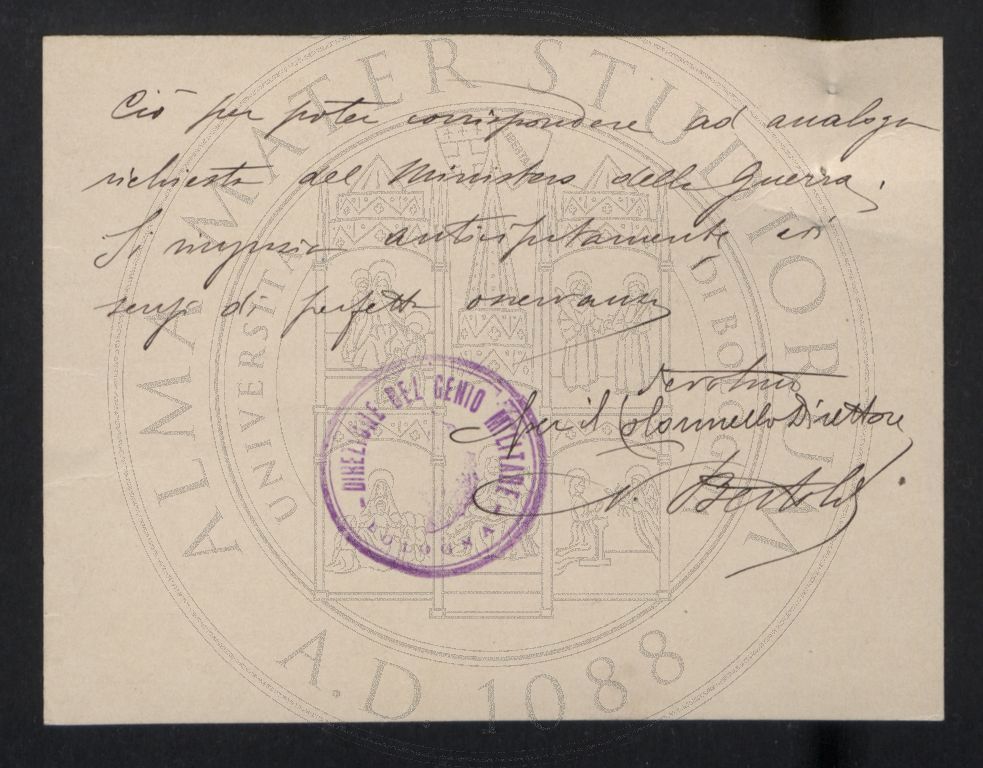 Ciò per poter corrispondere ad analoga
richiesta del Ministero della Guerra.
Si ringrazia anticipatamente coi
sensi di perfetta osservanza
Devotmo
Per il Colonnello Direttore
Bertoli
DIREZIONE DEL GENIO MILITARE
BOLOGNA
ALMA MATER STUDIORUM
UNIVERSITÀ DI BOLOGNA
A.D. 1088